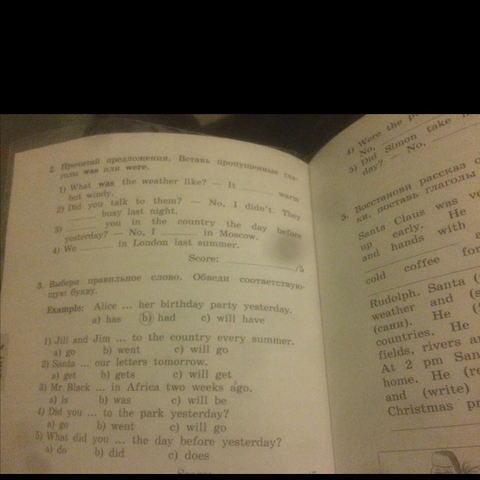 2. Прочитай предложения. Вставь пропущенные гла-
голы was или were.
1) What was the weather like? — It ______ warm
but windy.
2) Did you talk to them? — No, I didn't. They
______ busy last night.
3) ______ you in the country the day before
yesterday? — No, I ______ in Moscow.
4) We ______ in London last summer.
Score: ______/5
3. Выбери правильное слово. Обведи соответствую-
щую букву.
Example: Alice ... her birthday party yesterday.
a) has b) had c) will have
1) Jill and Jim ... to the country every summer.
a) go b) went c) will go
2) Santa ... our letters tomorrow.
a) get b) gets c) will get
3) Mr Black ... in Africa two weeks ago.
a) is b) was c) will be
4) Did you ... to the park yesterday?
a) go b) went c) will go
5) What did you ... the day before yesterday?
a) do b) did c) does
4) Were the
No,
5) Did Simon take
day? — No.
5. Восстанови рассказ
поставь глаголы
Santa Claus was
up early. He
and hands with
cold coffee for
Rudolph. Santa
weather and
(сани). He
countries. He
fields, rivers
At 2 pm
home. He
and (write)
Christmas